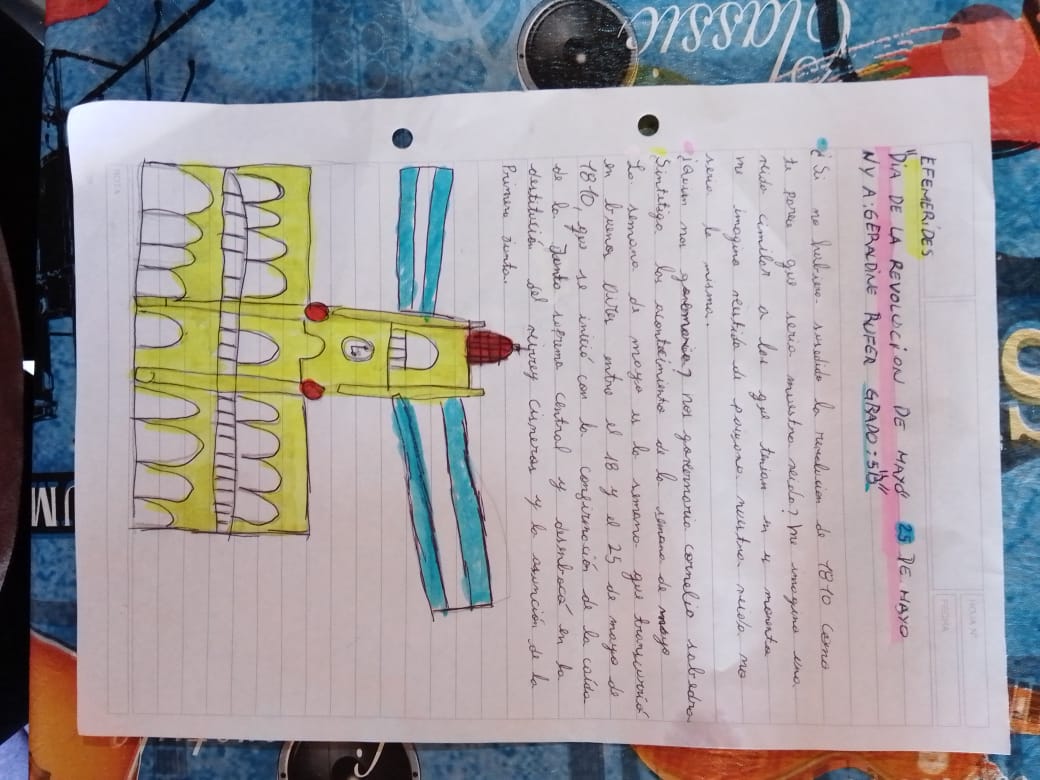 EFEMERIDES
"DIA DE LA REVOLUCION DE MAYO" 25 DE MAYO
N Y A: GERALDINE RUFER GRADO: 5B"
¿Si no hubiera sucedido la revolucion de 1810 como
te parece que seria nuestra vida? Me imagino una
vida cimilar a las que tenian en ese momento
me imagino vestida de paisana nuestra vida no
seria la misma.
¿Quien nos governaria? nos governaria cornelio sabedra
Sintetiza los acontecimiento de la semana de mayo
La semana de mayo es la semana que transcurrió
en buenos aires entre el 18 y el 25 de mayo de
1810, que se inició con la confirmación de la caída
de la Junta suprema central y desembocó en la
destitución del virrey cisneros y la asunción de la
Primera Junta.
HOJA N°
FECHA
NOTA
Classic
UM